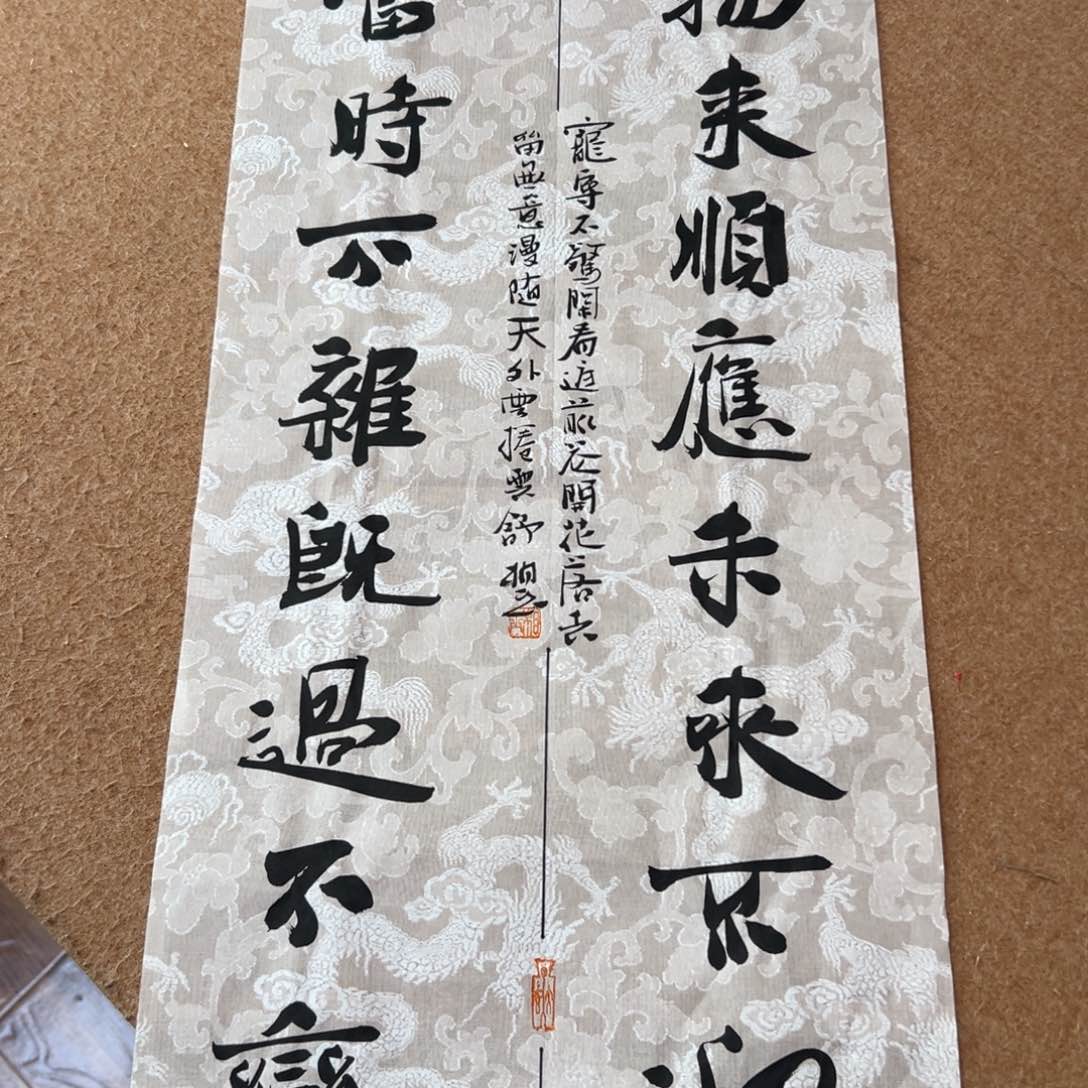 物来順應未来不迎
寵辱不驚閑看庭前花開花落去
留無意漫随天外雲捲雲舒
當時不雜既過不戀